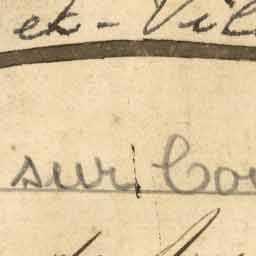 et-Vil
sur Cou